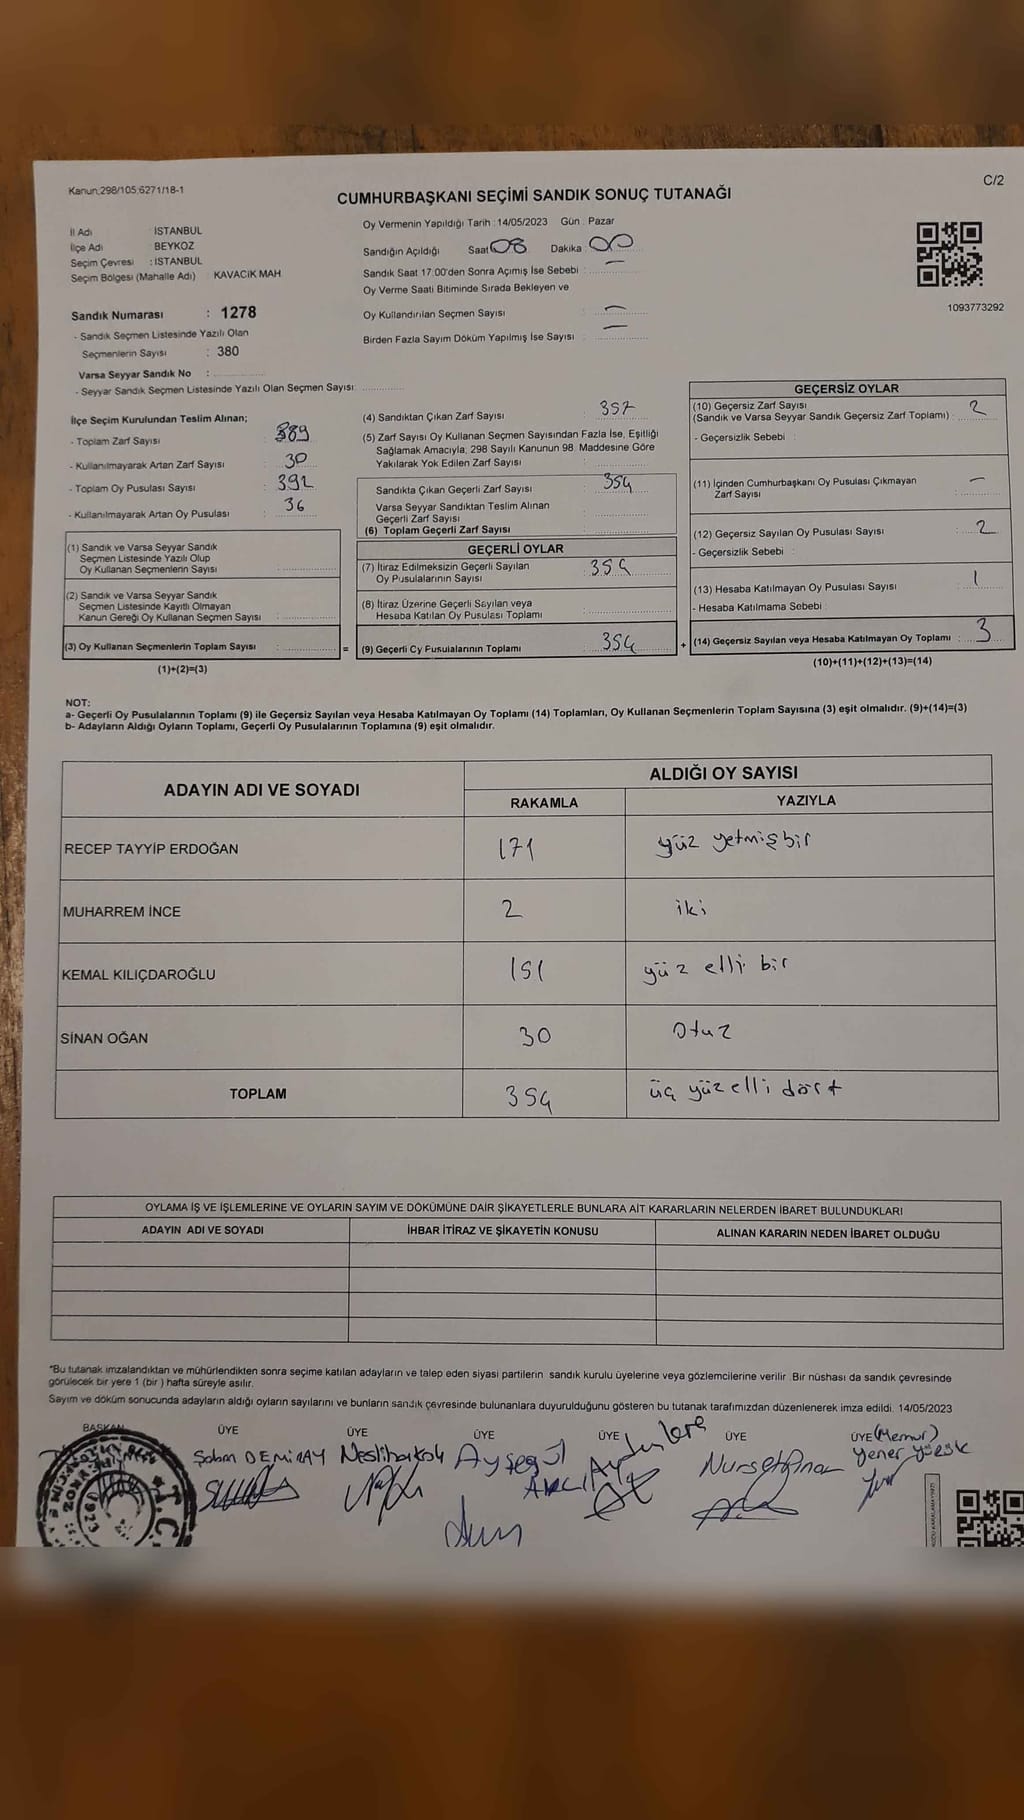 Kanun;298/105;6271/18-1
C/2
CUMHURBAŞKANI SEÇİMİ SANDIK SONUÇ TUTANAĞI
İl Adı : İSTANBUL
İlçe Adı : BEYKOZ
Seçim Çevresi : İSTANBUL
Seçim Bölgesi (Mahalle Adı) : KAVACIK MAH
Sandık Numarası : 1278
- Sandık Seçmen Listesinde Yazılı Olan
Seçmenlerin Sayısı : 380
Varsa Seyyar Sandık No :
- Seyyar Sandık Seçmen Listesinde Yazılı Olan Seçmen Sayısı:
Oy Vermenin Yapıldığı Tarih : 14/05/2023 Gün : Pazar
Sandığın Açıldığı Saat 08 Dakika : 00
Sandık Saat 17:00'den Sonra Açımış İse Sebebi : —
Oy Verme Saati Bitiminde Sırada Bekleyen ve
Oy Kullandırılan Seçmen Sayısı : —
Birden Fazla Sayım Döküm Yapılmış İse Sayısı : —
1093773292
İlçe Seçim Kurulundan Teslim Alınan;
- Toplam Zarf Sayısı : 389
- Kullanılmayarak Artan Zarf Sayısı : 30
- Toplam Oy Pusulası Sayısı : 392
- Kullanılmayarak Artan Oy Pusulası : 36
(1) Sandık ve Varsa Seyyar Sandık
Seçmen Listesinde Yazılı Olup
Oy Kullanan Seçmenlerin Sayısı :
(2) Sandık ve Varsa Seyyar Sandık
Seçmen Listesinde Kayıtlı Olmayan
Kanun Gereği Oy Kullanan Seçmen Sayısı :
(3) Oy Kullanan Seçmenlerin Toplam Sayısı : =
(1)+(2)=(3)
(4) Sandıktan Çıkan Zarf Sayısı : 357
(5) Zarf Sayısı Oy Kullanan Seçmen Sayısından Fazla İse, Eşitliği
Sağlamak Amacıyla, 298 Sayılı Kanunun 98. Maddesine Göre
Yakılarak Yok Edilen Zarf Sayısı :
Sandıkta Çıkan Geçerli Zarf Sayısı : 354
Varsa Seyyar Sandıktan Teslim Alınan
Geçerli Zarf Sayısı :
(6) Toplam Geçerli Zarf Sayısı :
GEÇERLİ OYLAR
(7) İtiraz Edilmeksizin Geçerli Sayılan
Oy Pusulalarının Sayısı : 354
(8) İtiraz Üzerine Geçerli Sayılan veya
Hesaba Katılan Oy Pusulası Toplamı :
(9) Geçerli Oy Pusulalarının Toplamı : 354 +
GEÇERSİZ OYLAR
(10) Geçersiz Zarf Sayısı
(Sandık ve Varsa Seyyar Sandık Geçersiz Zarf Toplamı) : 2
- Geçersizlik Sebebi :
(11) İçinden Cumhurbaşkanı Oy Pusulası Çıkmayan
Zarf Sayısı : —
(12) Geçersiz Sayılan Oy Pusulası Sayısı : 2
- Geçersizlik Sebebi :
(13) Hesaba Katılmayan Oy Pusulası Sayısı : 1
- Hesaba Katılmama Sebebi :
(14) Geçersiz Sayılan veya Hesaba Katılmayan Oy Toplamı : 3
(10)+(11)+(12)+(13)=(14)
NOT:
a- Geçerli Oy Pusulalarının Toplamı (9) ile Geçersiz Sayılan veya Hesaba Katılmayan Oy Toplamı (14) Toplamları, Oy Kullanan Seçmenlerin Toplam Sayısına (3) eşit olmalıdır. (9)+(14)=(3)
b- Adayların Aldığı Oyların Toplamı, Geçerli Oy Pusulalarının Toplamına (9) eşit olmalıdır.
ADAYIN ADI VE SOYADI
ALDIĞI OY SAYISI
RAKAMLA YAZIYLA
RECEP TAYYİP ERDOĞAN 171 yüz yetmişbir
MUHARREM İNCE 2 iki
KEMAL KILIÇDAROĞLU 151 yüz elli bir
SİNAN OĞAN 30 Otuz
TOPLAM 354 üç yüz elli dört
OYLAMA İŞ VE İŞLEMLERİNE VE OYLARIN SAYIM VE DÖKÜMÜNE DAİR ŞİKAYETLERLE BUNLARA AİT KARARLARIN NELERDEN İBARET BULUNDUKLARI
ADAYIN ADI VE SOYADI İHBAR İTİRAZ VE ŞİKAYETİN KONUSU ALINAN KARARIN NEDEN İBARET OLDUĞU
*Bu tutanak imzalandıktan ve mühürlendikten sonra seçime katılan adayların ve talep eden siyasi partilerin sandık kurulu üyelerine veya gözlemcilerine verilir. Bir nüshası da sandık çevresinde
görülecek bir yere 1 (bir ) hafta süreyle asılır.
Sayım ve döküm sonucunda adayların aldığı oyların sayılarını ve bunların sandık çevresinde bulunanlara duyurulduğunu gösteren bu tutanak tarafımızdan düzenlenerek imza edildi. 14/05/2023
BAŞKAN ÜYE ÜYE ÜYE ÜYE ÜYE ÜYE (Memur)
Şaban DEMİRAY Ayşegül AVCI Nurset Pınar